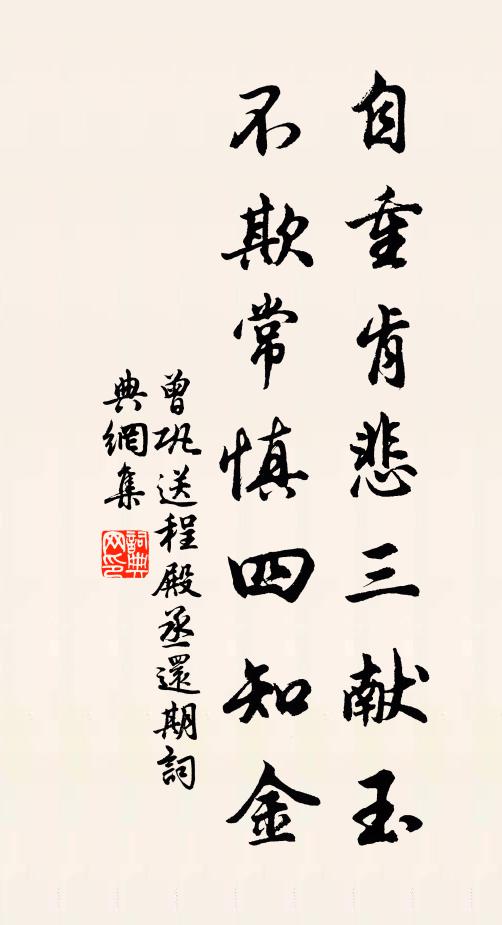 自重肯悲三献玉
不欺常慎四知金
曾巩送程殿丞還期詞
典網集
詞典网印